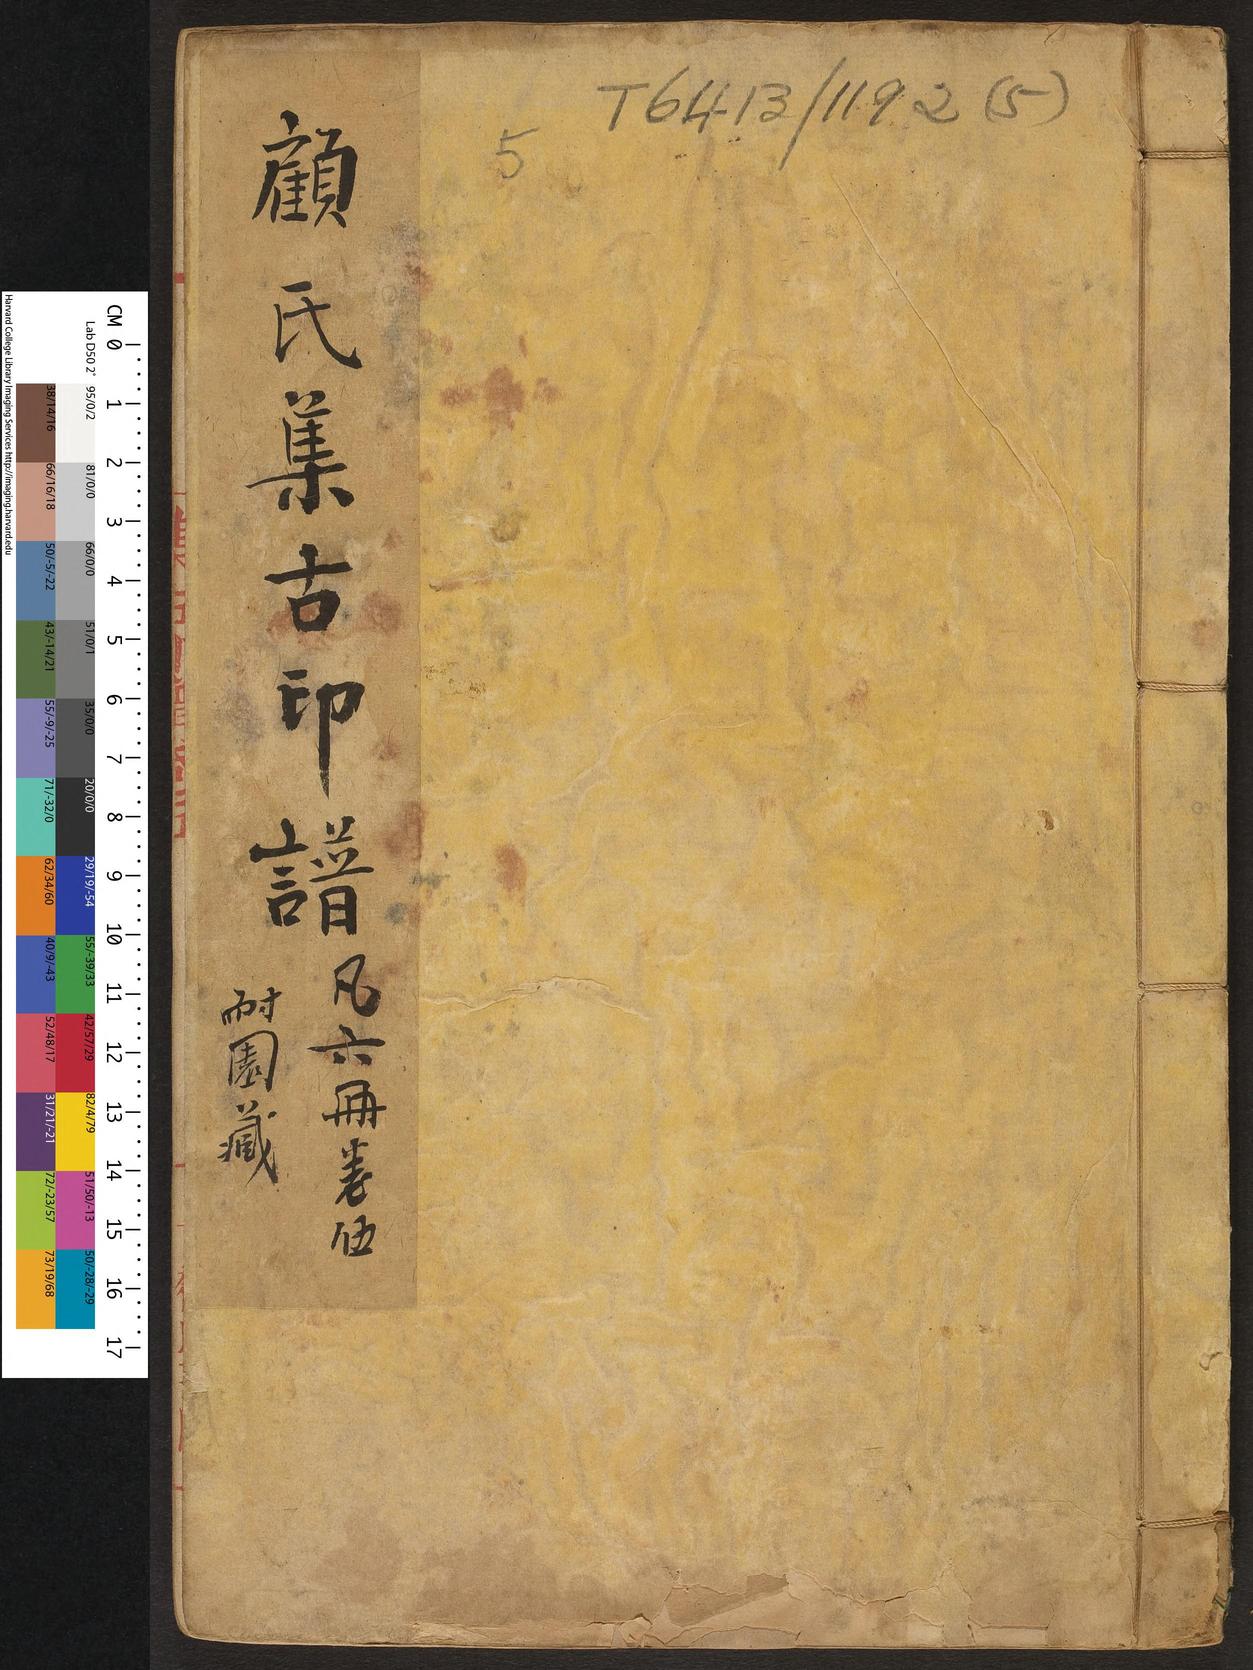 T6413/1192 (5)
5
顧氏集古印譜
凡六冊卷伍
耐園藏
CM 0 1 2 3 4 5 6 7 8 9 10 11 12 13 14 15 16 17
Lab D50 2° 95/0/2 81/0/0 66/0/0 51/0/1 35/0/0 20/0/0 29/19/-54 55/-39/33 42/57/29 82/4/79 51/50/-13 50/-28/-29
38/14/16 66/16/18 50/-5/-22 43/-14/21 55/-9/-25 71/-32/0 62/34/60 40/9/-43 52/48/17 31/21/-21 72/-23/57 73/19/68
Harvard College Library Imaging Services http://imaging.harvard.edu